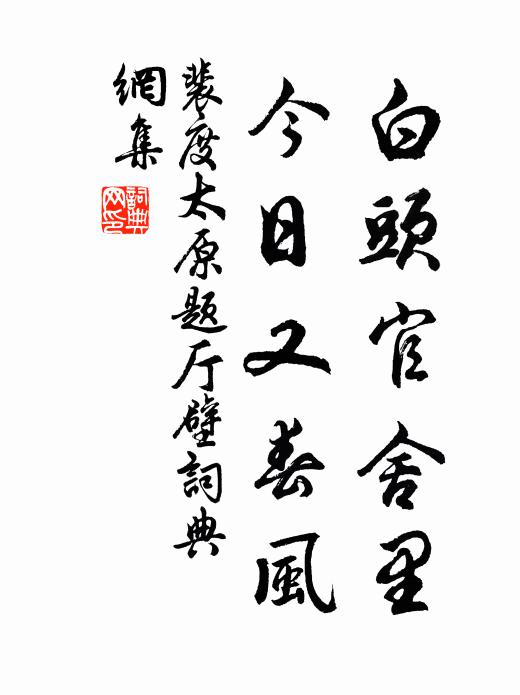 白頭官舍里
今日又春風
裴度太原题厅壁詞典
網集
詞典網印